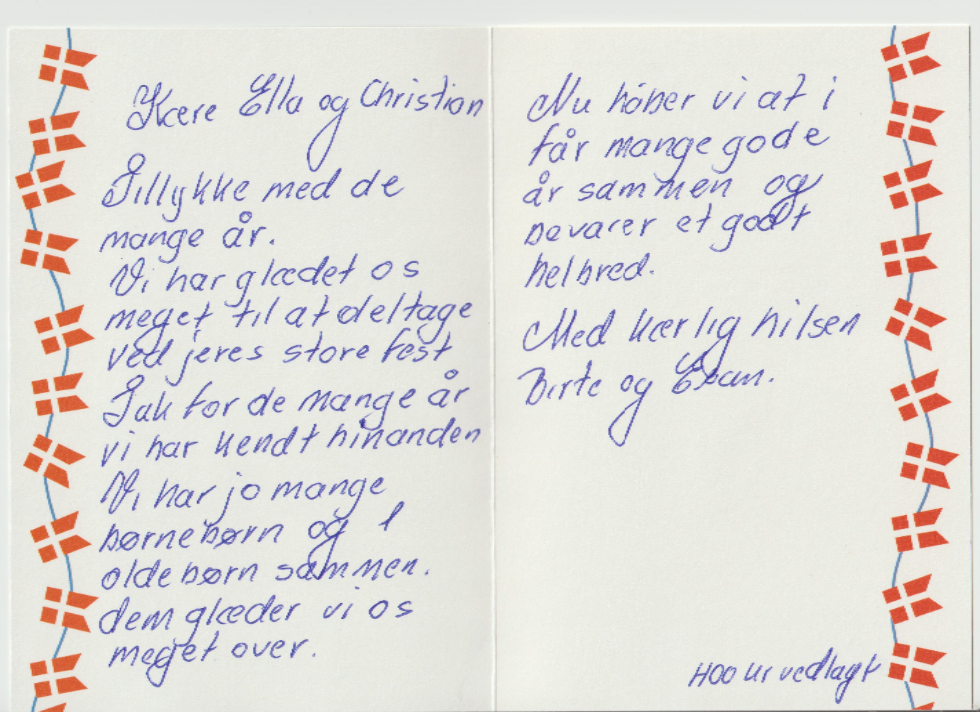 Kære Ella og Christian
Tillykke med de
mange år.
Vi har glædet os
meget til at deltage
ved jeres store fest
Tak for de mange år
vi har kendt hinanden
Vi har jo mange
børnebørn og 1
oldebørn sammen.
dem glæder vi os
meget over.
Nu håber vi at i
får mange gode
år sammen og
bevarer et godt
helbred.
Med kærlig hilsen
Birte og
400 kr vedlagt